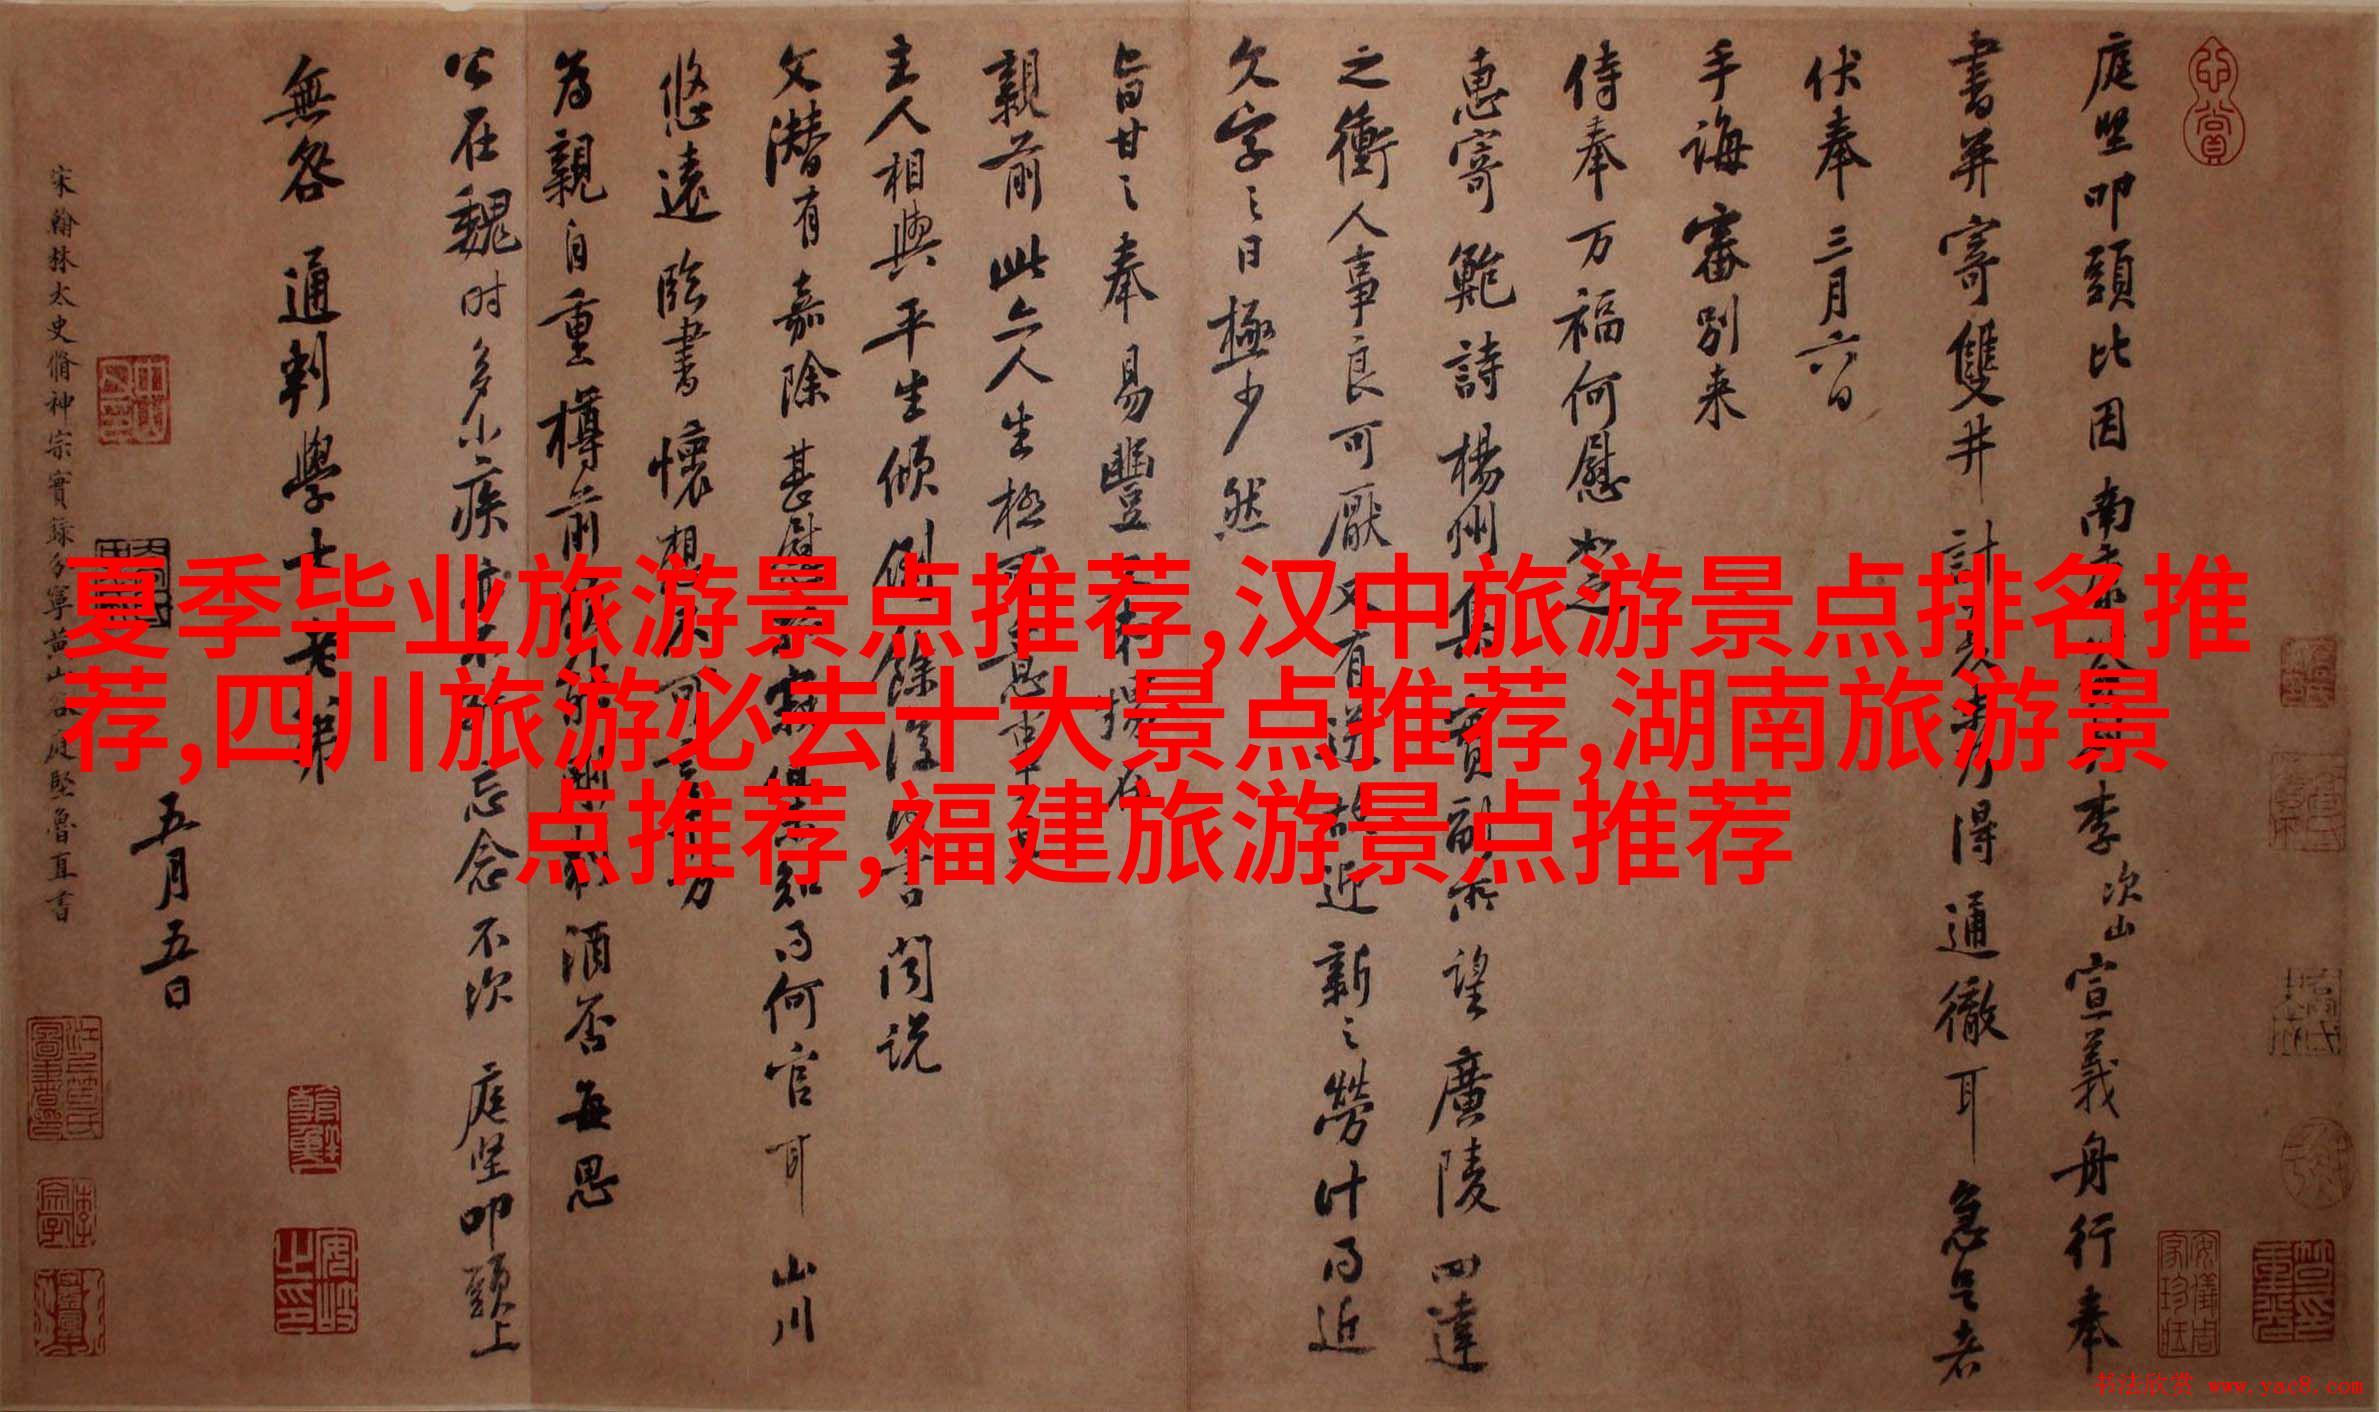 庭堅叩頭比因南康簽判李次山宣義舟行奉
書并寄雙井計
得通徹耳急足者
伏奉三月六日
手誨審別来
侍奉万福何慰如之
惠寄鮑詩楊州集實副所望廣陵四達
之衝人事良可厭又有送故近新之勞計得近
文字之日極少然
旨甘之奉易豐
親前此六人生極可意事
主人相與平生傾倒餘復
閒説
文潜有嘉除甚慰
得何官耳山川
悠遠臨書懷想不可言
万
為親自重樽前
酒否每思
公在魏时多小疾亦不
忘念不次庭堅叩頭上
無咎通判學士老弟
五月五日
宋翰林太史脩神宗實錄分寧黄山谷庭堅魯直書
夏季毕业旅游景点推荐,汉中旅游景点排名推
荐,四川旅游必去十大景点推荐,湖南旅游景
点推荐,福建旅游景点推荐
书法欣赏 www.yac8.com